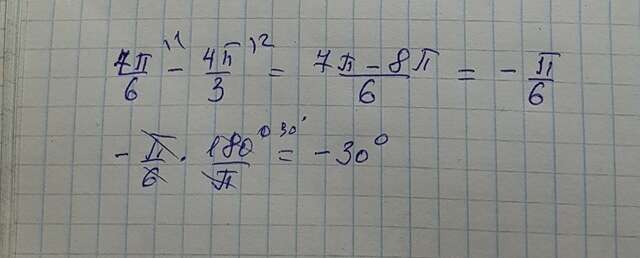 7π/6 \1 - 4π/3 \2 = 7π - 8π/6 = - π/6
- π/6 · 180°/π 30° = - 30°